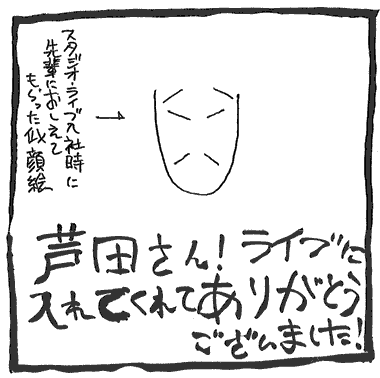 スタジオ・ライブ入社時に
先輩におしえて
もらった似顔絵
芦田さん!ライブに
入れてくれてありがとう
ございました!